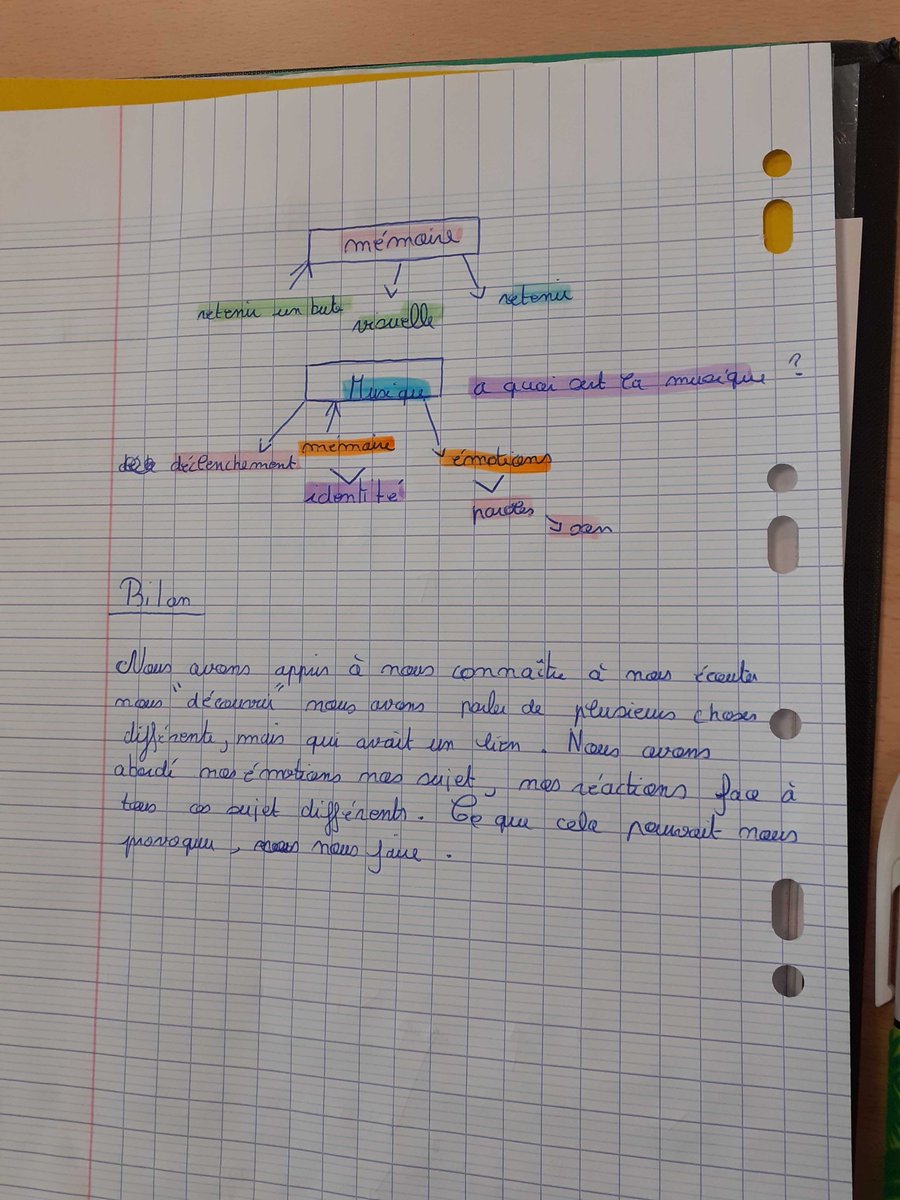 mémoire
retenir un but
visuelle
retenir
Musique
a quoi sert la musique ?
déclenchement
mémoire
émotions
identité
paroles
Bilan
Nous avons appris à nous connaître à nous écouter
nous "découvrir" nous avons parler de plusieurs choses
différente, mais qui avait un lien. Nous avons
abordé nos émotions nos sujet, nos réactions face à
tous ces sujet différents. Ce que cela pouvait nous
provoquer, nous faire.